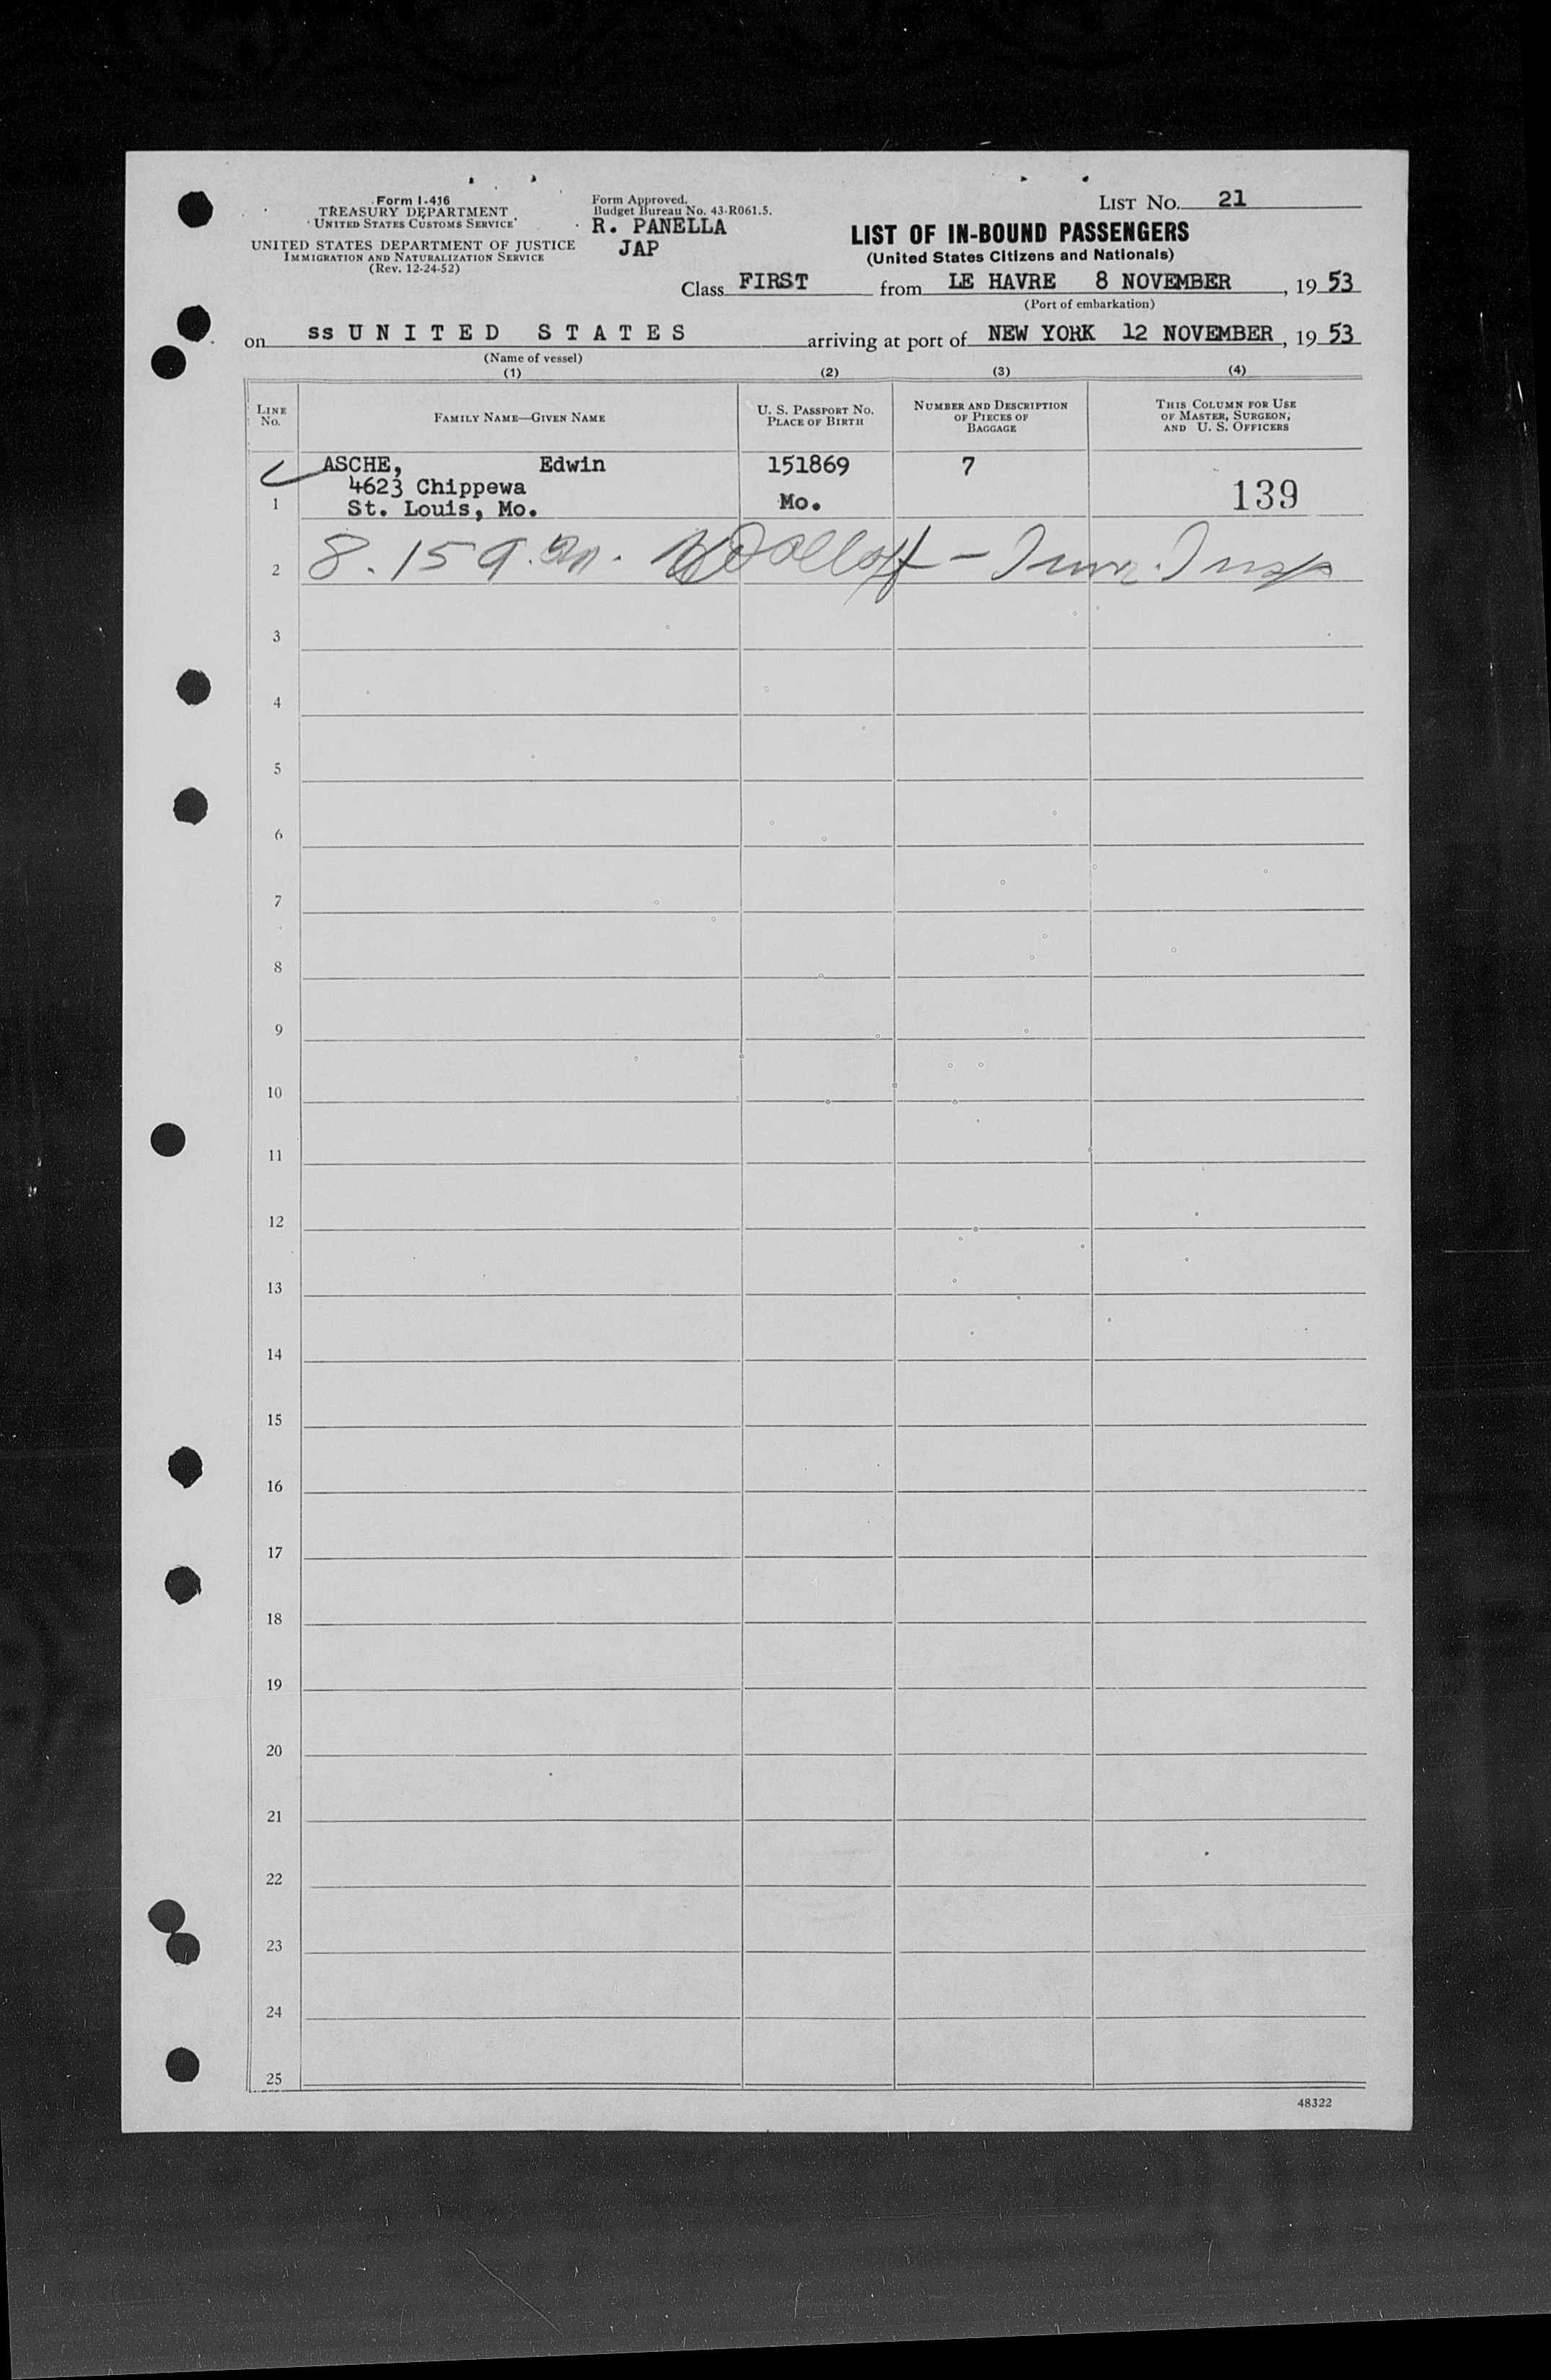 Form I-416
TREASURY DEPARTMENT
UNITED STATES CUSTOMS SERVICE
UNITED STATES DEPARTMENT OF JUSTICE
IMMIGRATION AND NATURALIZATION SERVICE
(Rev. 12-24-52)
Form Approved.
Budget Bureau No. 43-R061.5.
R. PANELLA
JAP
LIST No. 21
LIST OF IN-BOUND PASSENGERS
(United States Citizens and Nationals)
Class FIRST from LE HAVRE 8 NOVEMBER, 19 53
(Port of embarkation)
on ss UNITED STATES arriving at port of NEW YORK 12 NOVEMBER, 19 53
(Name of vessel)
(1) (2) (3) (4)
LINE No. FAMILY NAME—GIVEN NAME U. S. PASSPORT No. PLACE OF BIRTH NUMBER AND DESCRIPTION OF PIECES OF BAGGAGE THIS COLUMN FOR USE OF MASTER, SURGEON, AND U. S. OFFICERS
ASCHE, Edwin 151869 7
4623 Chippewa
1 St. Louis, Mo. Mo. 139
2 8.159. - Imm. Insp
3
4
5
6
7
8
9
10
11
12
13
14
15
16
17
18
19
20
21
22
23
24
25
48322